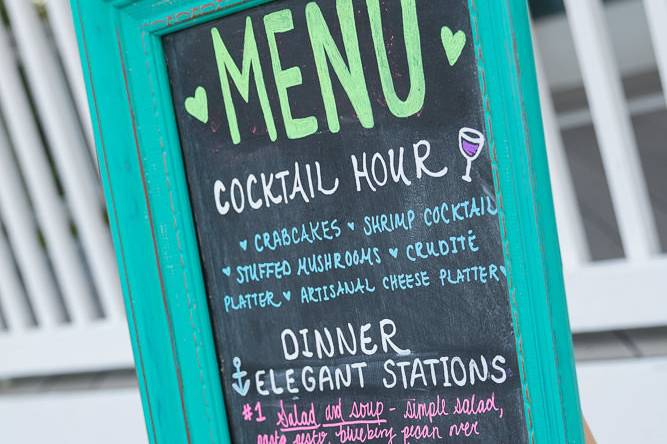 MENU
COCKTAIL HOUR
CRABCAKES ♥ SHRIMP COCKTAIL
STUFFED MUSHROOMS ♥ CRUDITÉ
PLATTER ♥ ARTISANAL CHEESE PLATTER
DINNER
ELEGANT STATIONS
#1 Salad and soup - simple salad,
pasta pesto, blueberry pecan